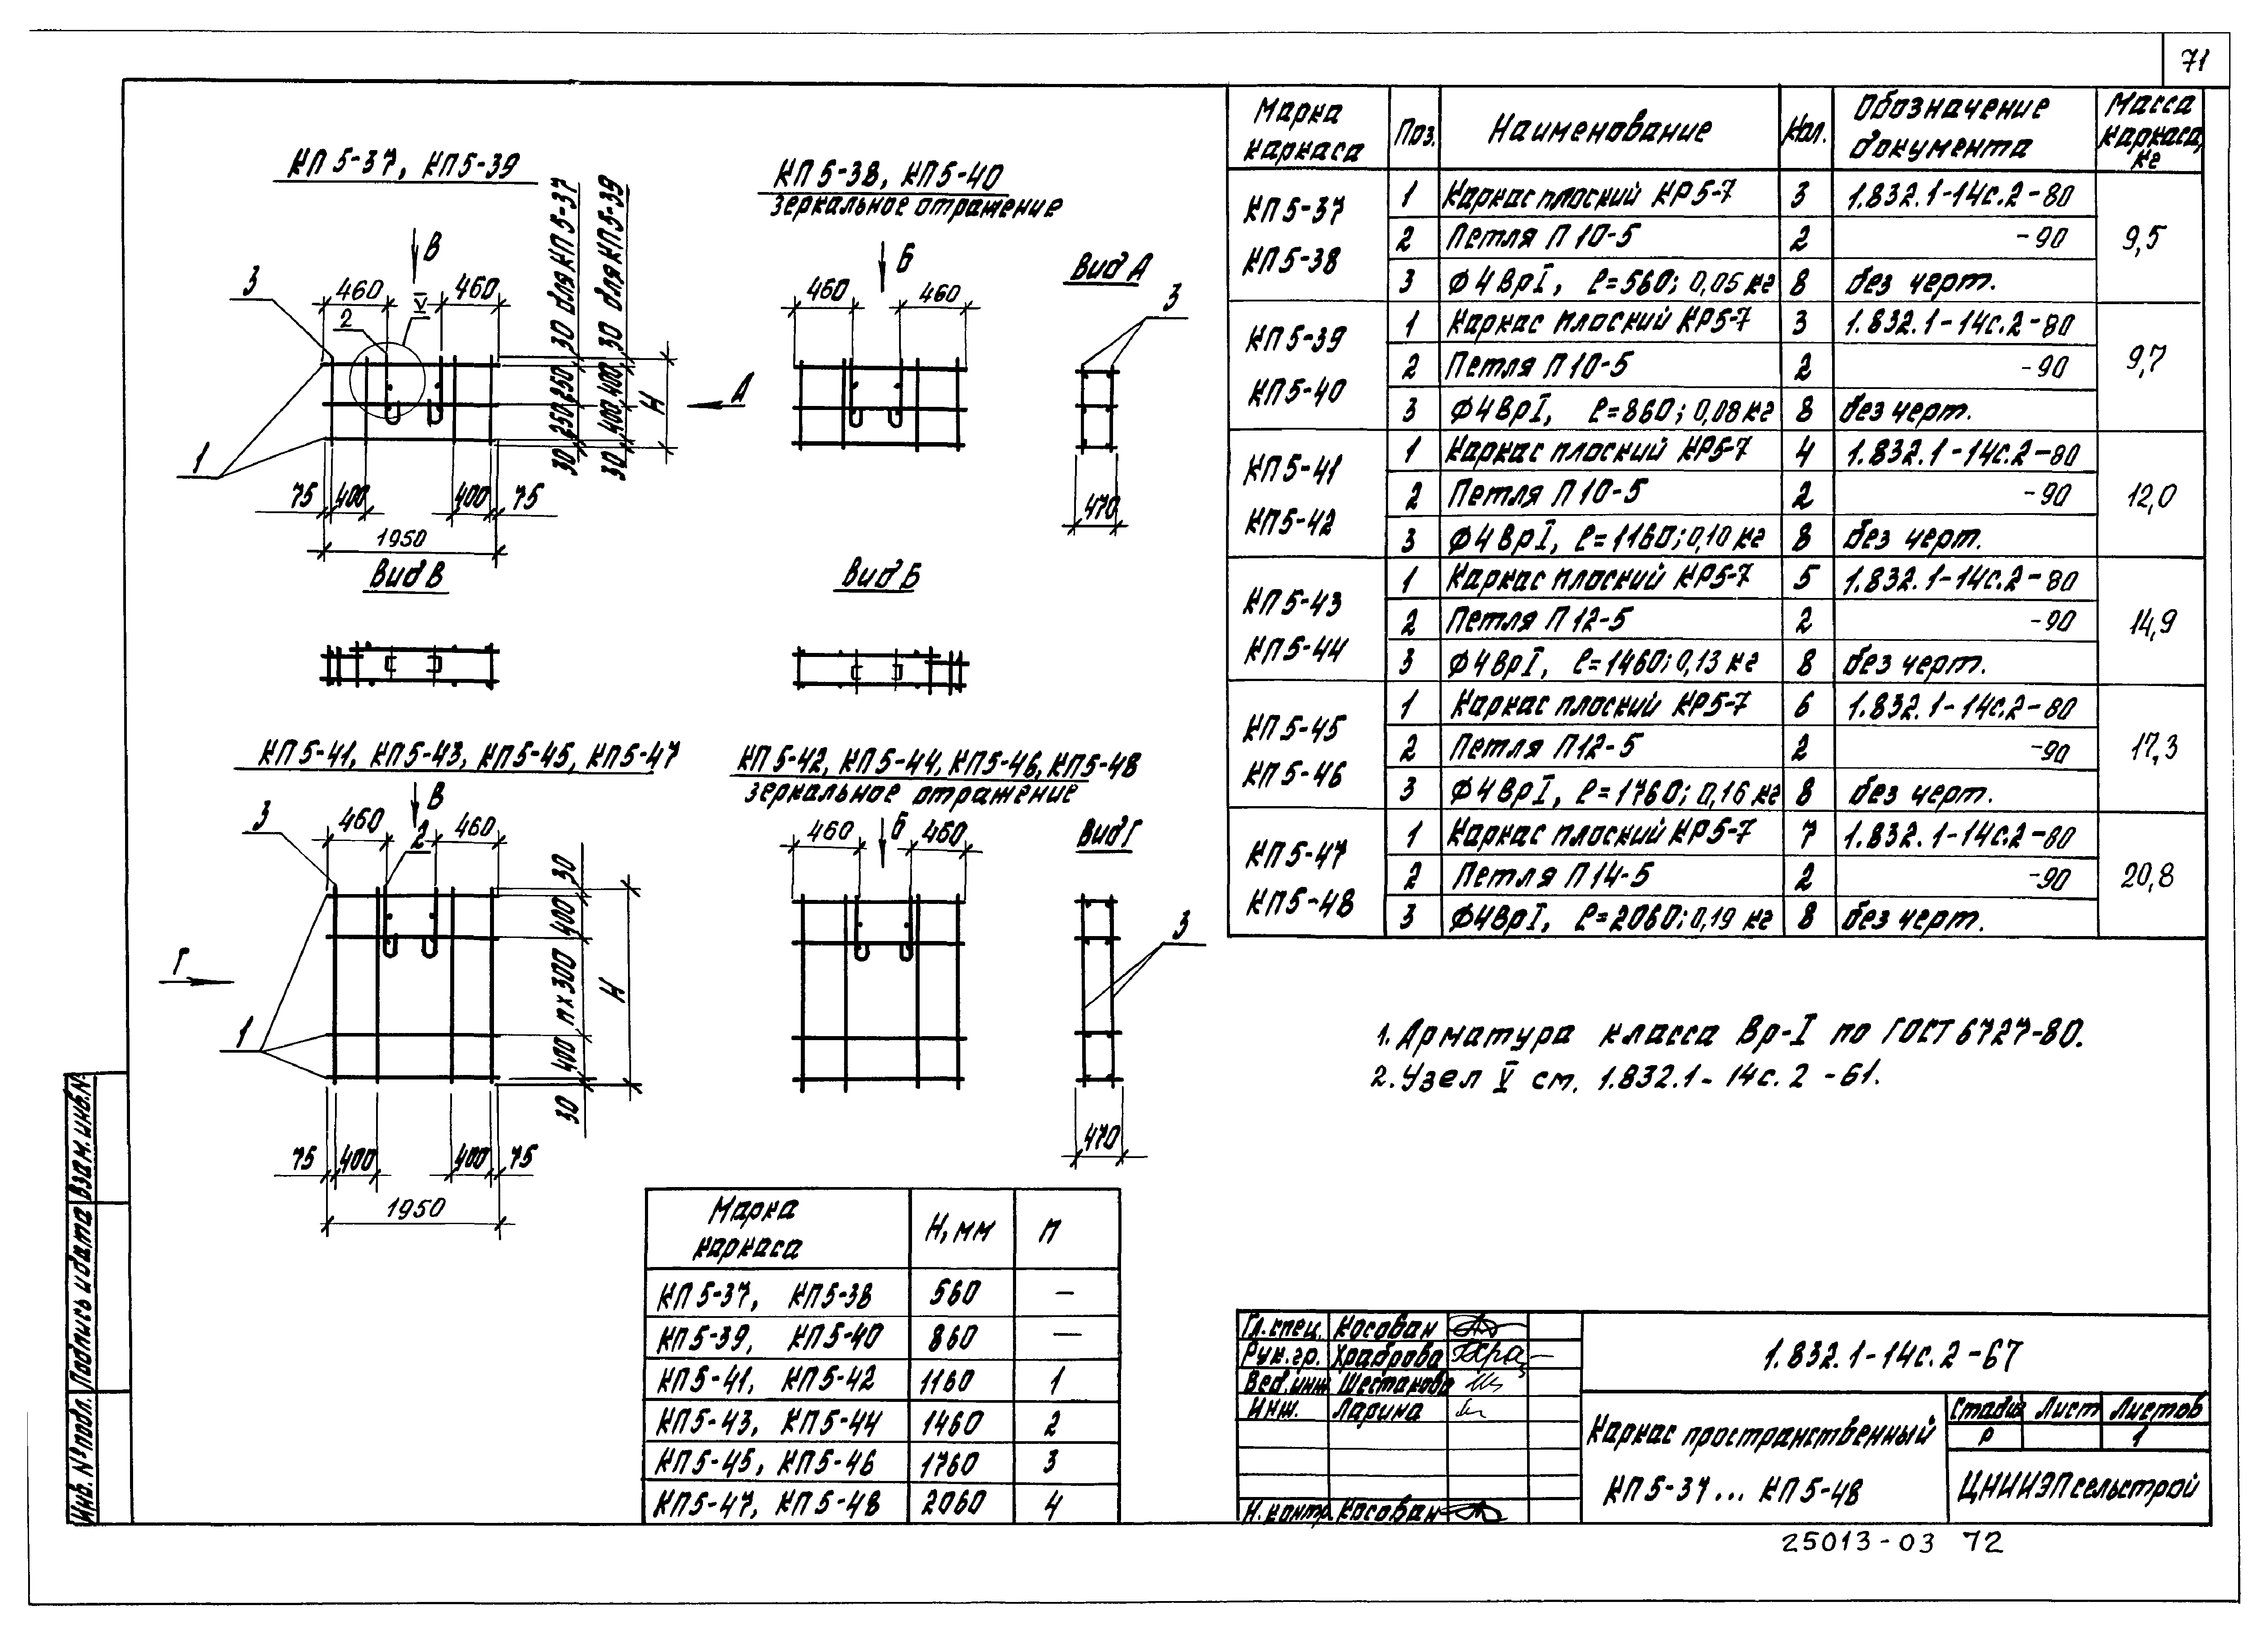 71
КП 5-37, КП5-39
КП 5-38, КП5-40
зеркальное отражение
В
3
460
460
V
2
30 для КП 5-37
30 для КП5-39
250
250
30
400
400
30
Н
А
1
75
400
400
75
1950
Б
460
460
Вид А
3
470
Вид В
Вид Б
КП 5-41, КП5-43, КП5-45, КП5-47
КП 5-42, КП5-44, КП5-46, КП5-48
зеркальное отражение
В
3
460
2
460
30
400
n х 300
400
30
Н
Г
1
75
400
400
75
1950
460
Б
460
Вид Г
3
470
Марка каркаса
Поз.
Наименование
Кол.
Обозначение документа
Масса каркаса, кг
КП 5-37
КП 5-38
1 Каркас плоский КР5-7 3 1.832.1-14с.2-80
2 Петля П 10-5 2 -90
3 Ф4ВрI, ℓ=560; 0,05 кг 8 без черт.
9,5
КП 5-39
КП 5-40
1 Каркас плоский КР5-7 3 1.832.1-14с.2-80
2 Петля П 10-5 2 -90
3 Ф4ВрI, ℓ=860; 0,08 кг 8 без черт.
9,7
КП 5-41
КП5-42
1 Каркас плоский КР5-7 4 1.832.1-14с.2-80
2 Петля П 10-5 2 -90
3 Ф4ВрI, ℓ=1160; 0,10 кг 8 без черт.
12,0
КП 5-43
КП 5-44
1 Каркас плоский КР5-7 5 1.832.1-14с.2-80
2 Петля П 12-5 2 -90
3 Ф4ВрI, ℓ=1460; 0,13 кг 8 без черт.
14,9
КП 5-45
КП 5-46
1 Каркас плоский КР5-7 6 1.832.1-14с.2-80
2 Петля П12-5 2 -90
3 Ф4ВрI, ℓ=1760; 0,16 кг 8 без черт.
17,3
КП 5-47
КП5-48
1 Каркас плоский КР5-7 7 1.832.1-14с.2-80
2 Петля П 14-5 2 -90
3 Ф4ВрI, ℓ=2060; 0,19 кг 8 без черт.
20,8
1. Арматура класса Вр-I по ГОСТ 6727-80.
2. Узел V см. 1.832.1-14с.2-61.
Марка каркаса
Н, мм
n
КП 5-37, КП5-38 560 —
КП 5-39, КП5-40 860 —
КП 5-41, КП5-42 1160 1
КП 5-43, КП5-44 1460 2
КП 5-45, КП5-46 1760 3
КП 5-47, КП5-48 2060 4
Взам. инв.№
Подпись и дата
Инв. № подл.
Гл. спец. Косован
Рук. гр. Храброва
Вед. инж. Шестакова
Инж. Ларина
Н. контр. Косован
1.832.1-14с.2-67
Каркас пространственный
КП 5-37... КП 5-48
Стадия Лист Листов
Р 1
ЦНИИЭПсельстрой
25013-03 72